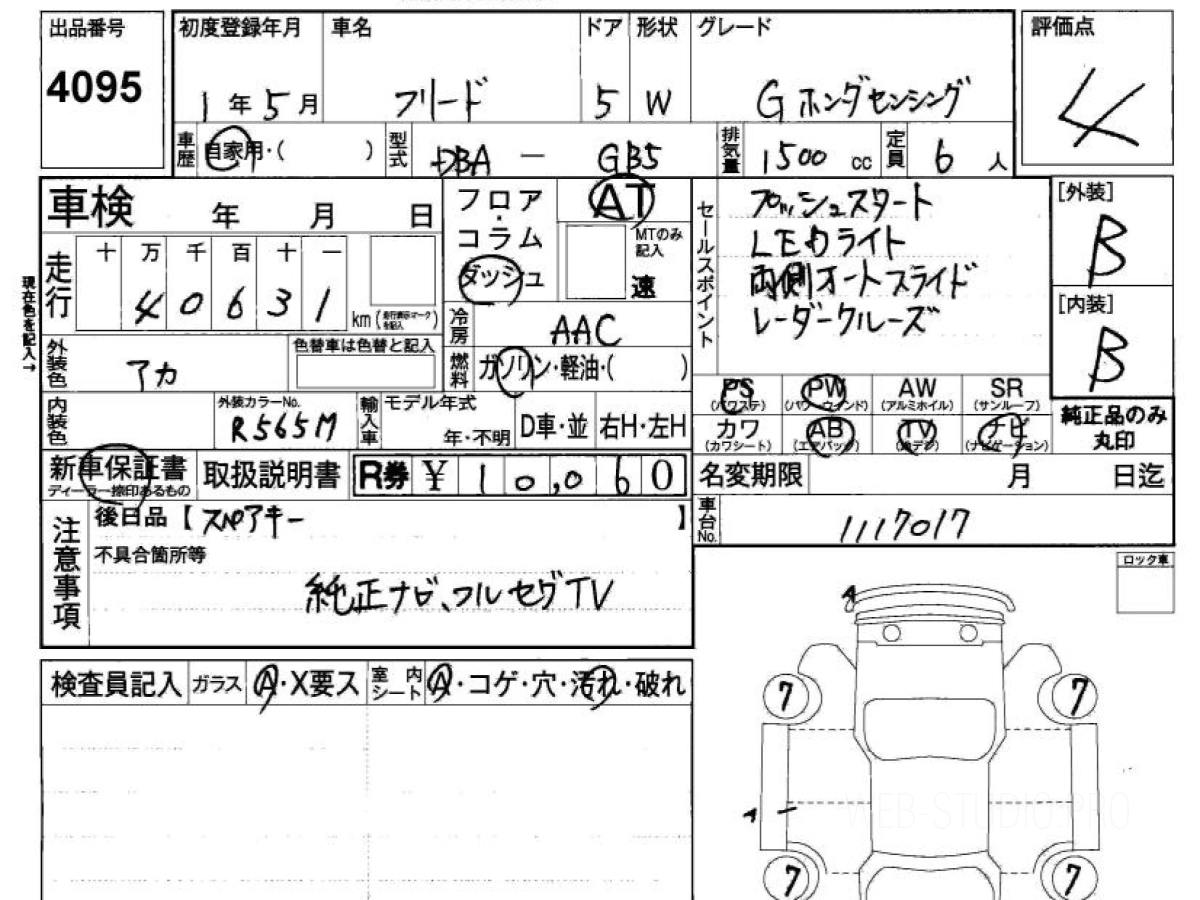 出品番号
4095
初度登録年月 車名 ドア 形状 グレード
1年5月 フリード 5 W Gホンダセンシング
評価点
4
車歴 自家用・( ) 型式 DBA － GB5 排気量 1500 cc 定員 6 人
車検 年 月 日
走行 十 万 千 百 十 一
40631 km(走行表示マークを記入)
現在色を記入→
外装色 アカ 色替車は色替と記入
内装色 外装カラーNo. R565M 輸入車 モデル年式 年・不明 D車・並 右H・左H
フロア・コラム
ダッシュ
AT
MTのみ記入
速
冷房 AAC
燃料 ガソリン・軽油・( )
セールスポイント
プッシュスタート
LEDライト
両側オートスライド
レーダークルーズ
[外装]
B
[内装]
B
PS (パワステ) PW (パワーウインド) AW (アルミホイル) SR (サンルーフ)
カワ (カワシート) AB (エアバッグ) TV (地デジ) ナビ (ナビゲーション)
純正品のみ
丸印
新車保証書
ディーラー捺印あるもの
取扱説明書 R券 ¥ 10,060
名変期限 月 日迄
車台No. 1117017
注意事項
後日品【スペアキー 】
不具合箇所等
純正ナビ、フルセグTV
ロック車
検査員記入 ガラス A・X要ス 室内シート A・コゲ・穴・汚れ・破れ
A
7 7
A
7 7
WEB-STUDIO.PRO